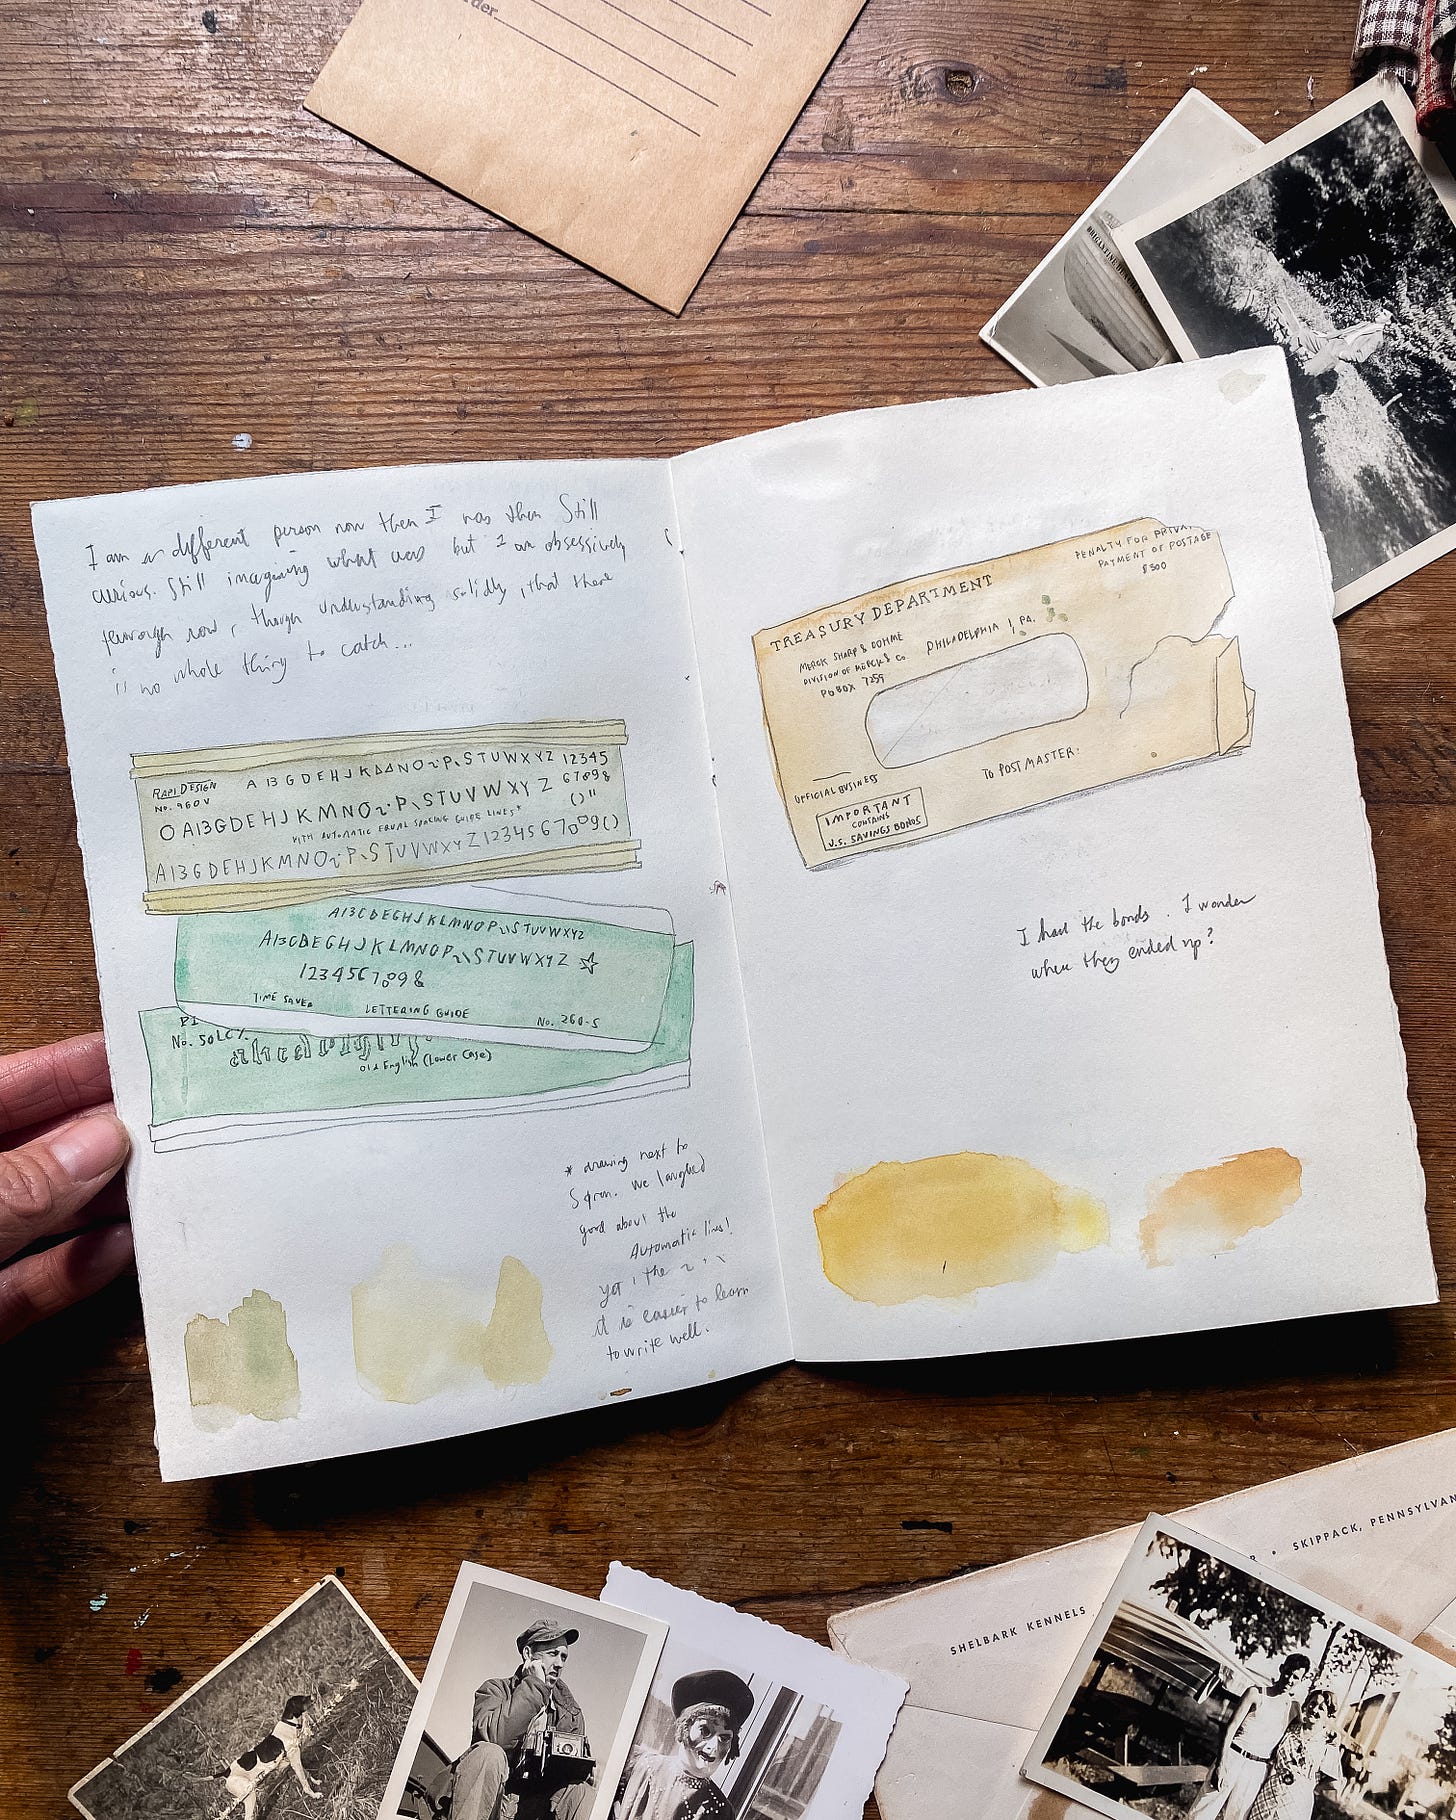 der
BRIGANTINE
I am a different person now then I was then Still
curious. Still imagining what was but I am obsessively
now, though understanding solidly, that there
is no whole thing to catch...
RAPIDESIGN
No. 960V
A 13 G D E H J K N O P S T U W X Y Z 12345
67098
O A13GDEHJKMNO P \ S T U V W X Y Z
() "
WITH AUTOMATIC EQUAL SPACING GUIDE LINES*
A13GDEHJKMNO P \ S T U V W X Y Z 1234567009()
A13CDEGHJKLMNOP \ STUVWXYZ
A13CDEGHJKLMNOP \ STUVWXYZ ☆
1234567098
TIME SAVER
LETTERING GUIDE
No. 260-S
No. 50LC
Old English (Lower Case)
* drawing next to
we laughed
good about the
Automatic lines!
yet, the ~ ' \
it is easier to learn
to write well.
TREASURY DEPARTMENT
PENALTY FOR PRIVAT
PAYMENT OF POSTAGE
$300
MERCK SHARP & DOHME
DIVISION OF MERCK & Co
PO BOX 7259
PHILADELPHIA 1, PA.
OFFICIAL BUSINESS
TO POSTMASTER:
IMPORTANT
CONTAINS
U.S. SAVINGS BONDS
I have the bonds. I wonder
where they ended up?
SHELBARK KENNELS
R • SKIPPACK, PENNSYLVAN